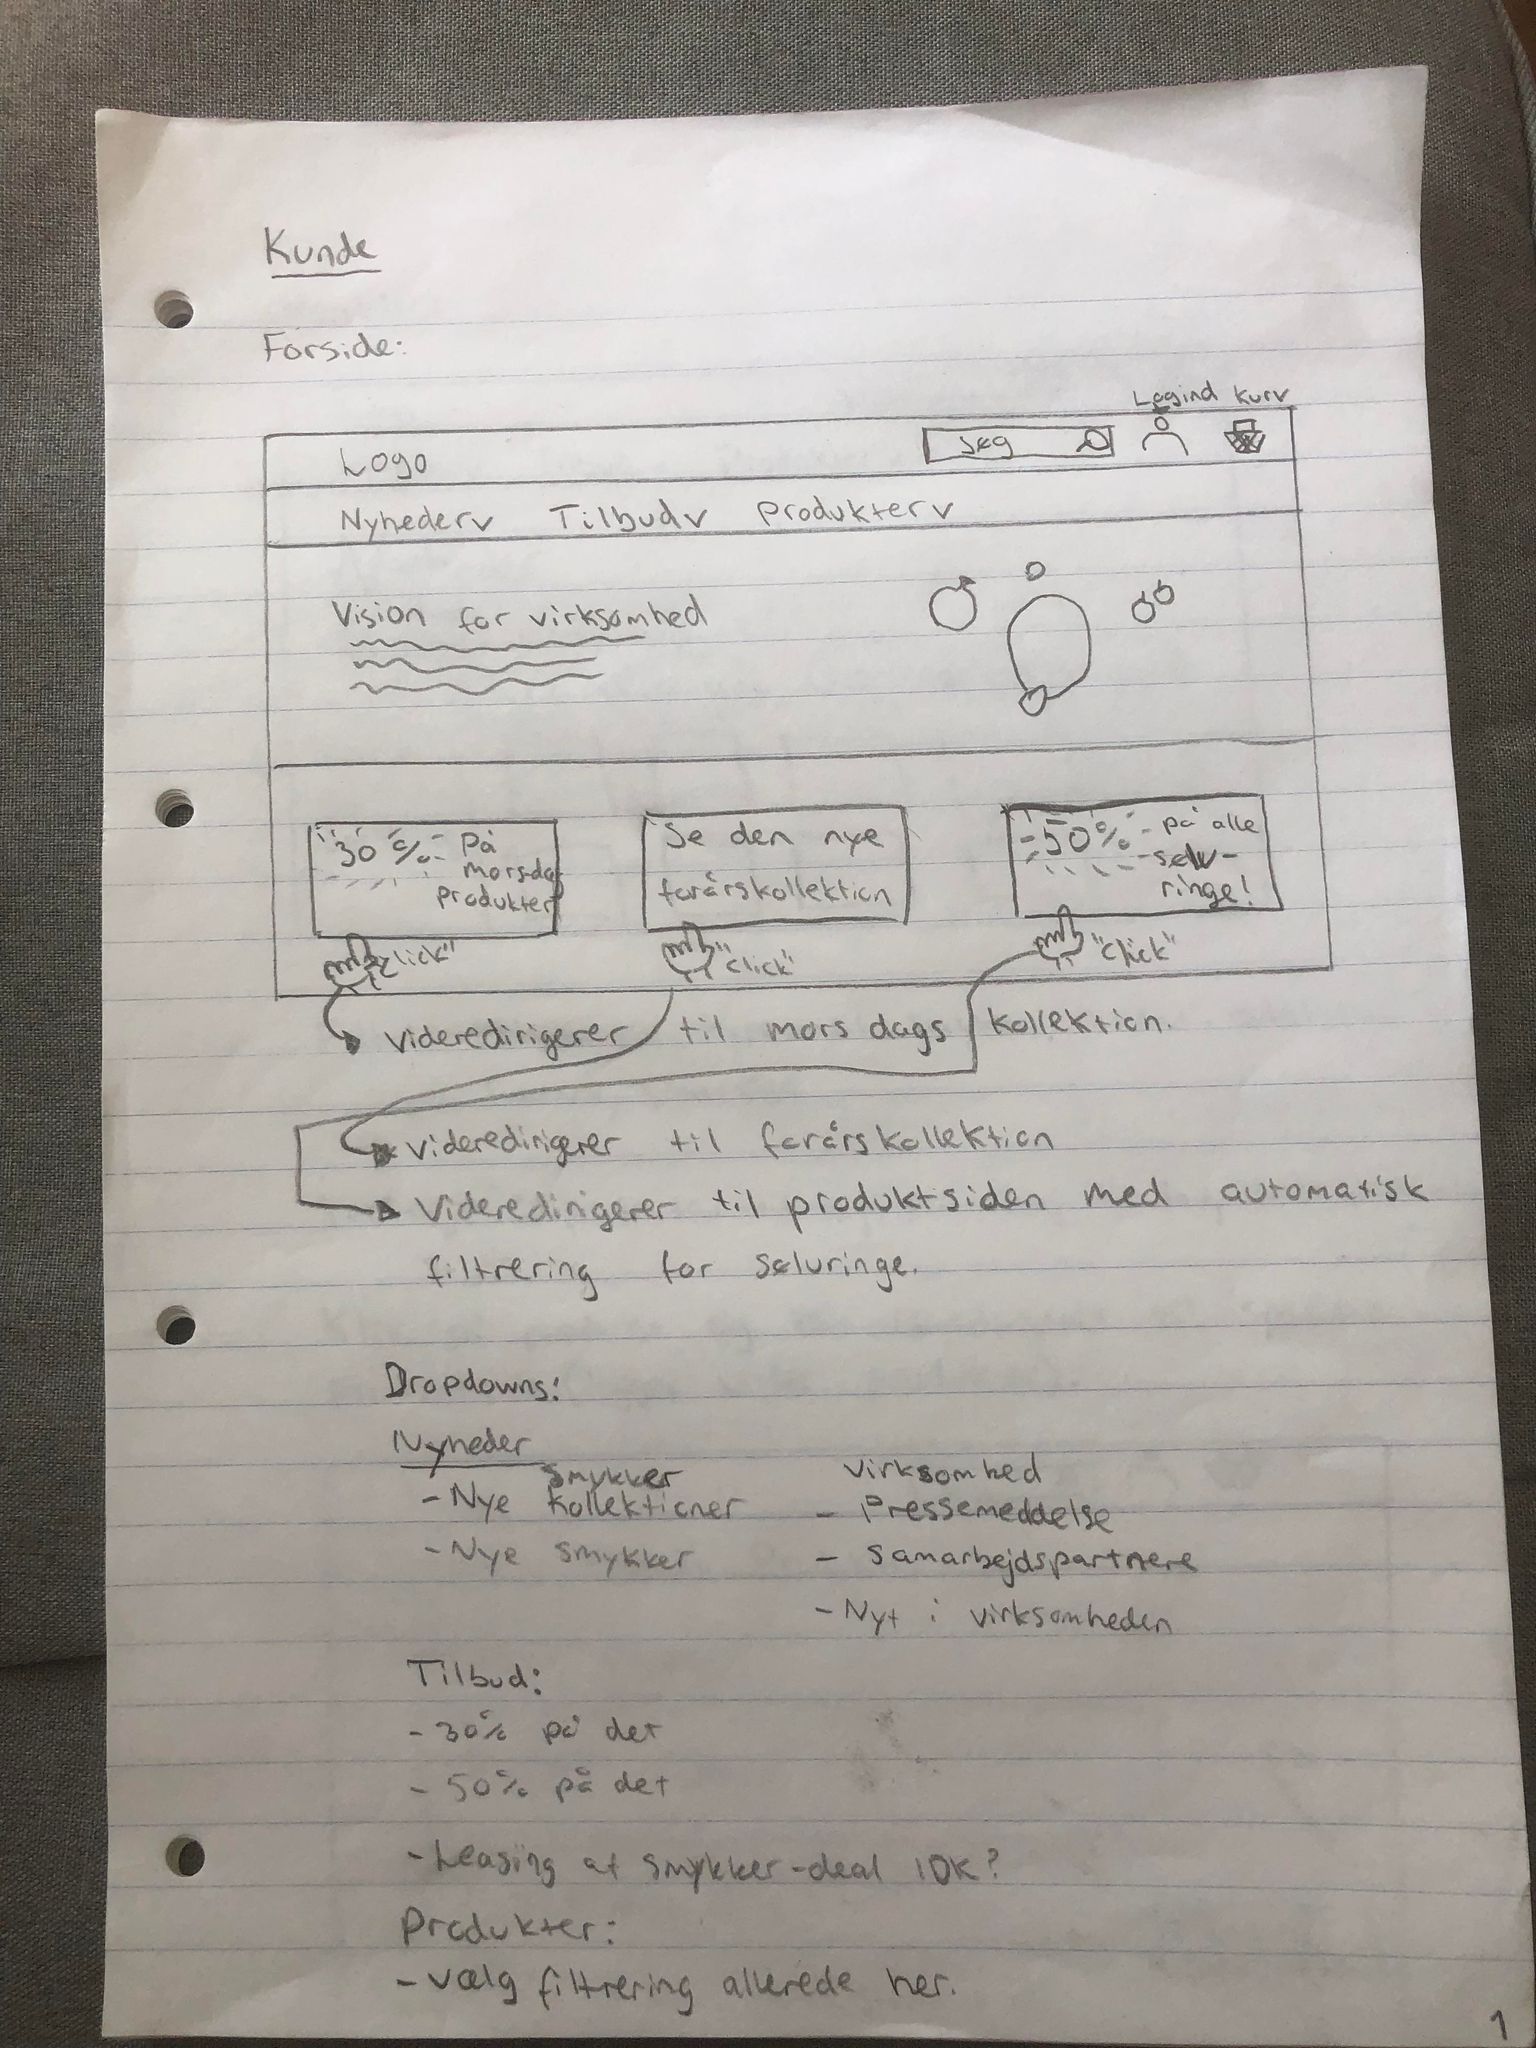 Kunde
Forside:
Logind Kurv
Logo
Søg
Nyheder v Tilbud v Produkter v
Vision for virksomhed
30% på
morsdag
produkter
Se den nye
forårskollektion
50% på alle
sølv-
ringe!
"click"
"click"
"click"
Videredirigerer til mors dags kollektion.
Videredirigerer til forårskollektion
Videredirigerer til produktsiden med automatisk
filtrering for sølvringe.
Dropdowns:
Nyheder
Smykker
- Nye kollektioner
- Nye smykker
Virksomhed
- Pressemeddelse
- Samarbejdspartnere
- Nyt i virksomheden
Tilbud:
- 30% på det
- 50% på det
- Leasing af smykker-deal IDK?
Produkter:
- Vælg filtrering allerede her.
1